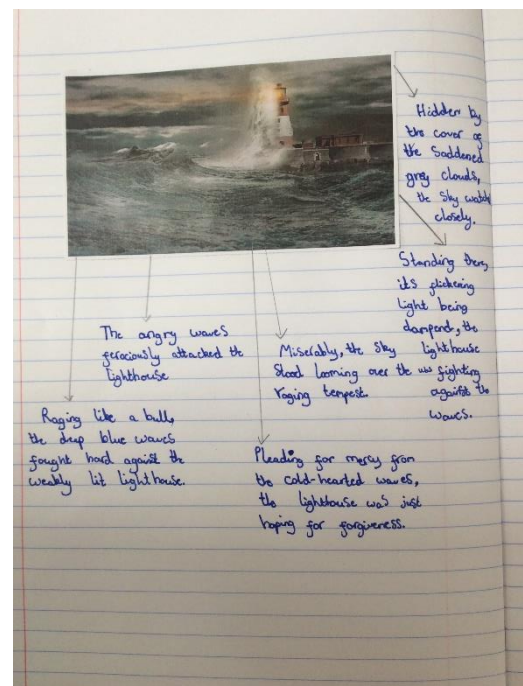 Hidden by
the cover of
the Saddened
grey clouds,
the sky watch
closely.
Standing there,
its flickering
light being
dampend, the
lighthouse
fighting
against the
waves.
The angry waves
ferociously attacked the
lighthouse
Miserably, the sky
stood looming over the
raging tempest.
Raging like a bull,
the deep blue waves
fought hard against the
weakly lit lighthouse.
Pleading for mercy from
the cold-hearted waves,
the lighthouse was just
hoping for forgiveness.